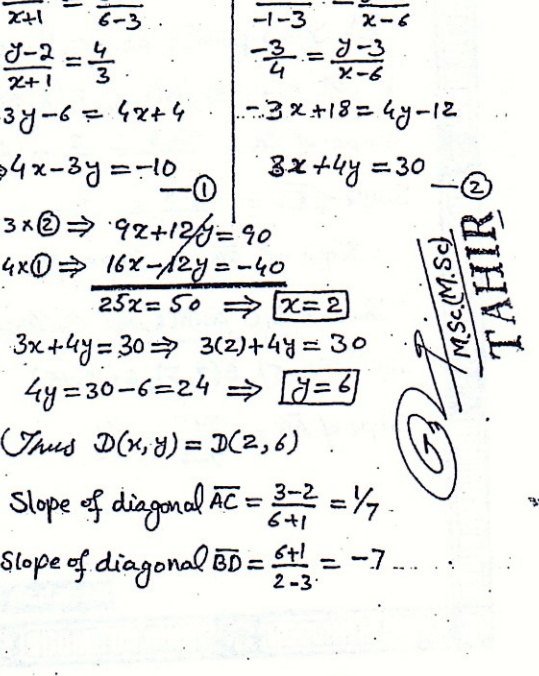 x+1 6-3
-1-3 x-6
(y-2)/(x+1) = 4/3
-3/4 = (y-3)/(x-6)
3y-6 = 4x+4
-3x+18 = 4y-12
4x-3y = -10 —①
3x+4y = 30 —②
3×② ⇒ 9x+12y = 90
4×① ⇒ 16x-12y = -40
25x = 50 ⇒ x=2
3x+4y = 30 ⇒ 3(2)+4y = 30
4y = 30-6 = 24 ⇒ y=6
Thus D(x,y) = D(2,6)
Slope of diagonal AC = (3-2)/(6+1) = 1/7
Slope of diagonal BD = (6+1)/(2-3) = -7
M.Sc.(M.Sc)
TAHIR